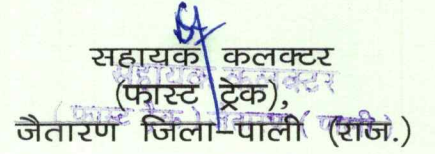 सहायक कलक्टर
(फास्ट ट्रेक),
जैतारण जिला-पाली (राज.)